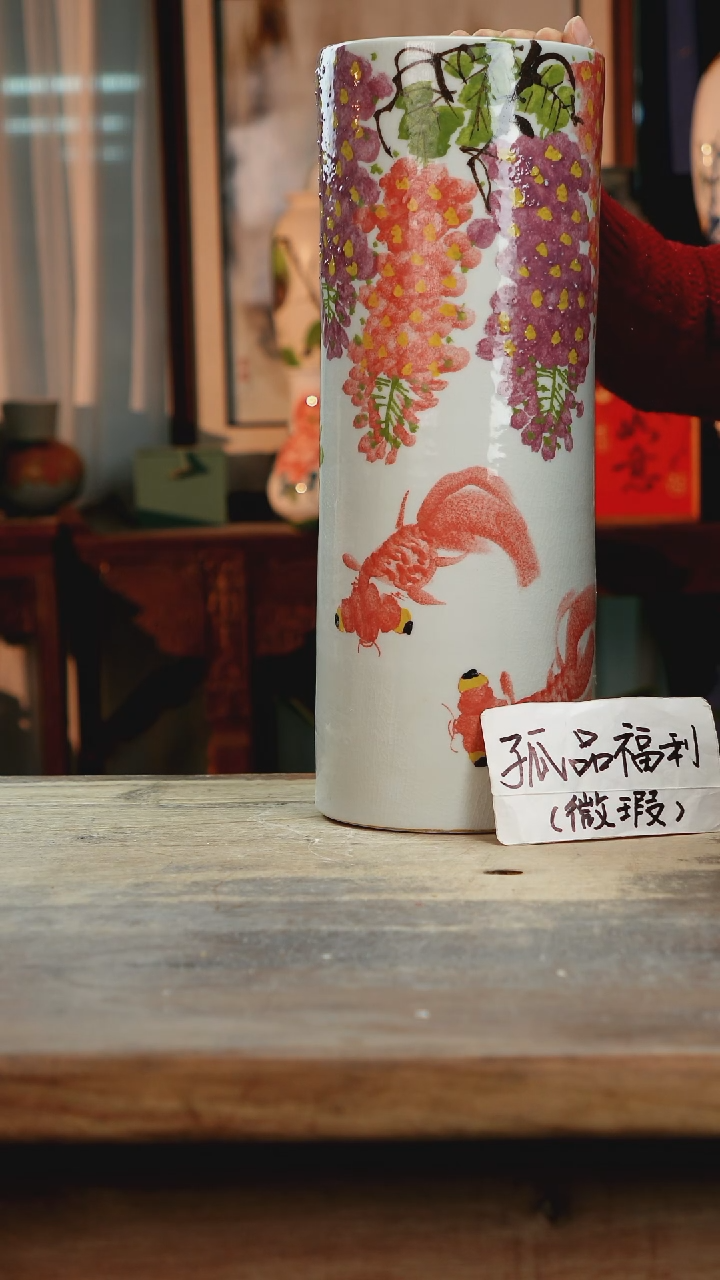 孤品福利
（微瑕）